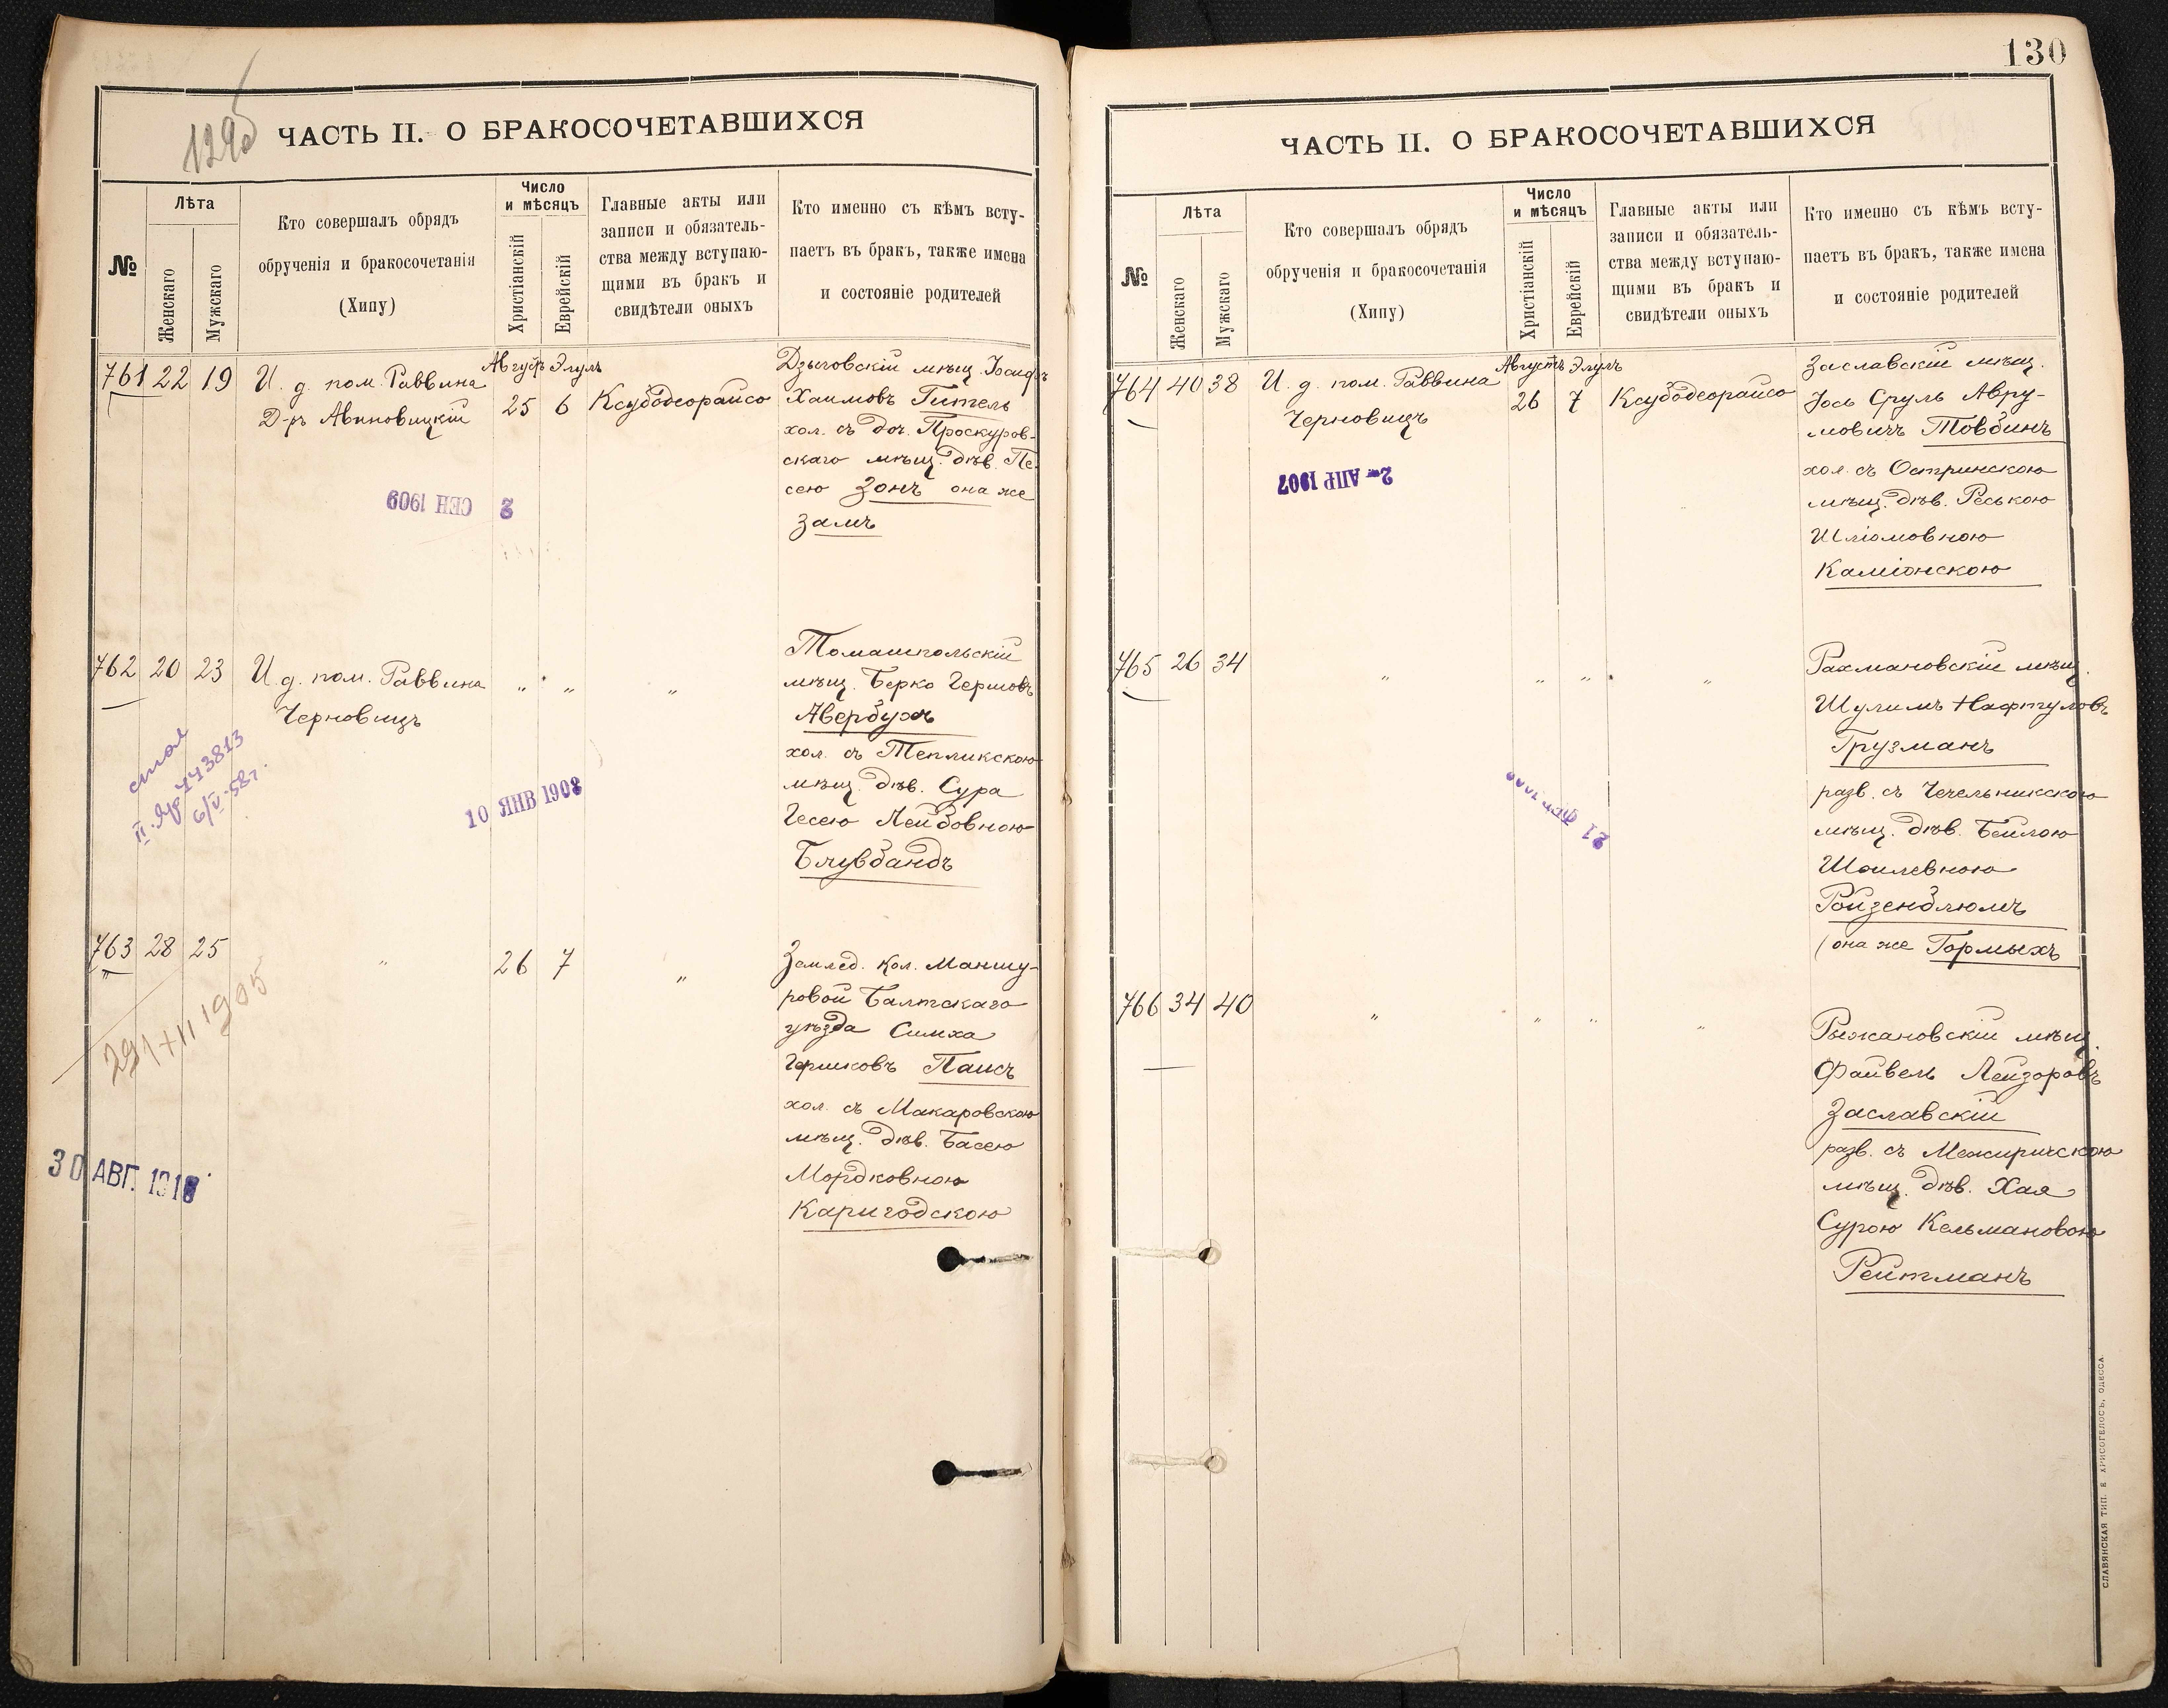 129об
ЧАСТЬ II. О БРАКОСОЧЕТАВШИХСЯ
№
Лѣта
Женскаго
Мужскаго
Кто совершалъ обрядъ
обрученія и бракосочетанія
(Хипу)
Число
и мѣсяцъ
Христіанскій
Еврейскій
Главные акты или
записи и обязатель-
ства между вступаю-
щими въ бракъ и
свидѣтели оныхъ
Кто именно съ кѣмъ всту-
паетъ въ бракъ, также имена
и состояніе родителей
761 22 19
И. д. пом. Раввина
Д-ръ Авиновицкій
Августъ Элулъ
25 6
Ксубодеорайсо
Дзыговскій мѣщ. Іосифъ
Хаимовъ Гительъ
хол. съ доч. Проскуров-
скаго мѣщ. дѣв. Пе-
сею Зонъ она же
Замъ
2 СЕН 1909
762 20 23
И. д. пом. Раввина
Черновицъ
" " "
Томашпольскій
мѣщ. Берко Гершовъ
Авербухъ
хол. съ Тепликскою
мѣщ. дѣв. Сура
Гесею Лейбовною
Блувбандъ
443813
6/V-58г.
10 ЯНВ 1908
763 28 25
"
26 7
"
Землед. Кол. Маншу-
ровой Балтскаго
уѣзда Симха
Гершковъ Паисъ
хол. съ Макаровскою
мѣщ. дѣв. Басею
Мордковною
Каригодскою
1905
30 АВГ. 191
130
ЧАСТЬ II. О БРАКОСОЧЕТАВШИХСЯ
№
Лѣта
Женскаго
Мужскаго
Кто совершалъ обрядъ
обрученія и бракосочетанія
(Хипу)
Число
и мѣсяцъ
Христіанскій
Еврейскій
Главные акты или
записи и обязатель-
ства между вступаю-
щими въ бракъ и
свидѣтели оныхъ
Кто именно съ кѣмъ всту-
паетъ въ бракъ, также имена
и состояніе родителей
764 40 38
И. д. пом. Раввина
Черновицъ
Августъ Элулъ
26 7
Ксубодеорайсо
Заславскій мѣщ.
Іось Сруль Авру-
мовичъ Товбинъ
хол. съ Остринскою
мѣщ. дѣв. Реською
Шліомовною
Каміонскою
2- АПР 1907
765 26 34
" " " "
Рахмановскій мѣщ.
Шулимъ Нафтуловъ
Грузманъ
разв. съ Чечельникскою
мѣщ. дѣв. Бейлою
Шоилевною
Ройзенблюмъ
(она же Гормыхъ
21
766 34 40
" " " "
Рыжановскій мѣщ.
Файвель Лейзоровъ
Заславскій
разв. съ Межиричскою
мѣщ. дѣв. Хая
Сурою Кельмановою
Рейтманъ
СЛАВЯНСКАЯ ТИП. Е. ХРИСОГЕЛОСЪ, ОДЕССА.